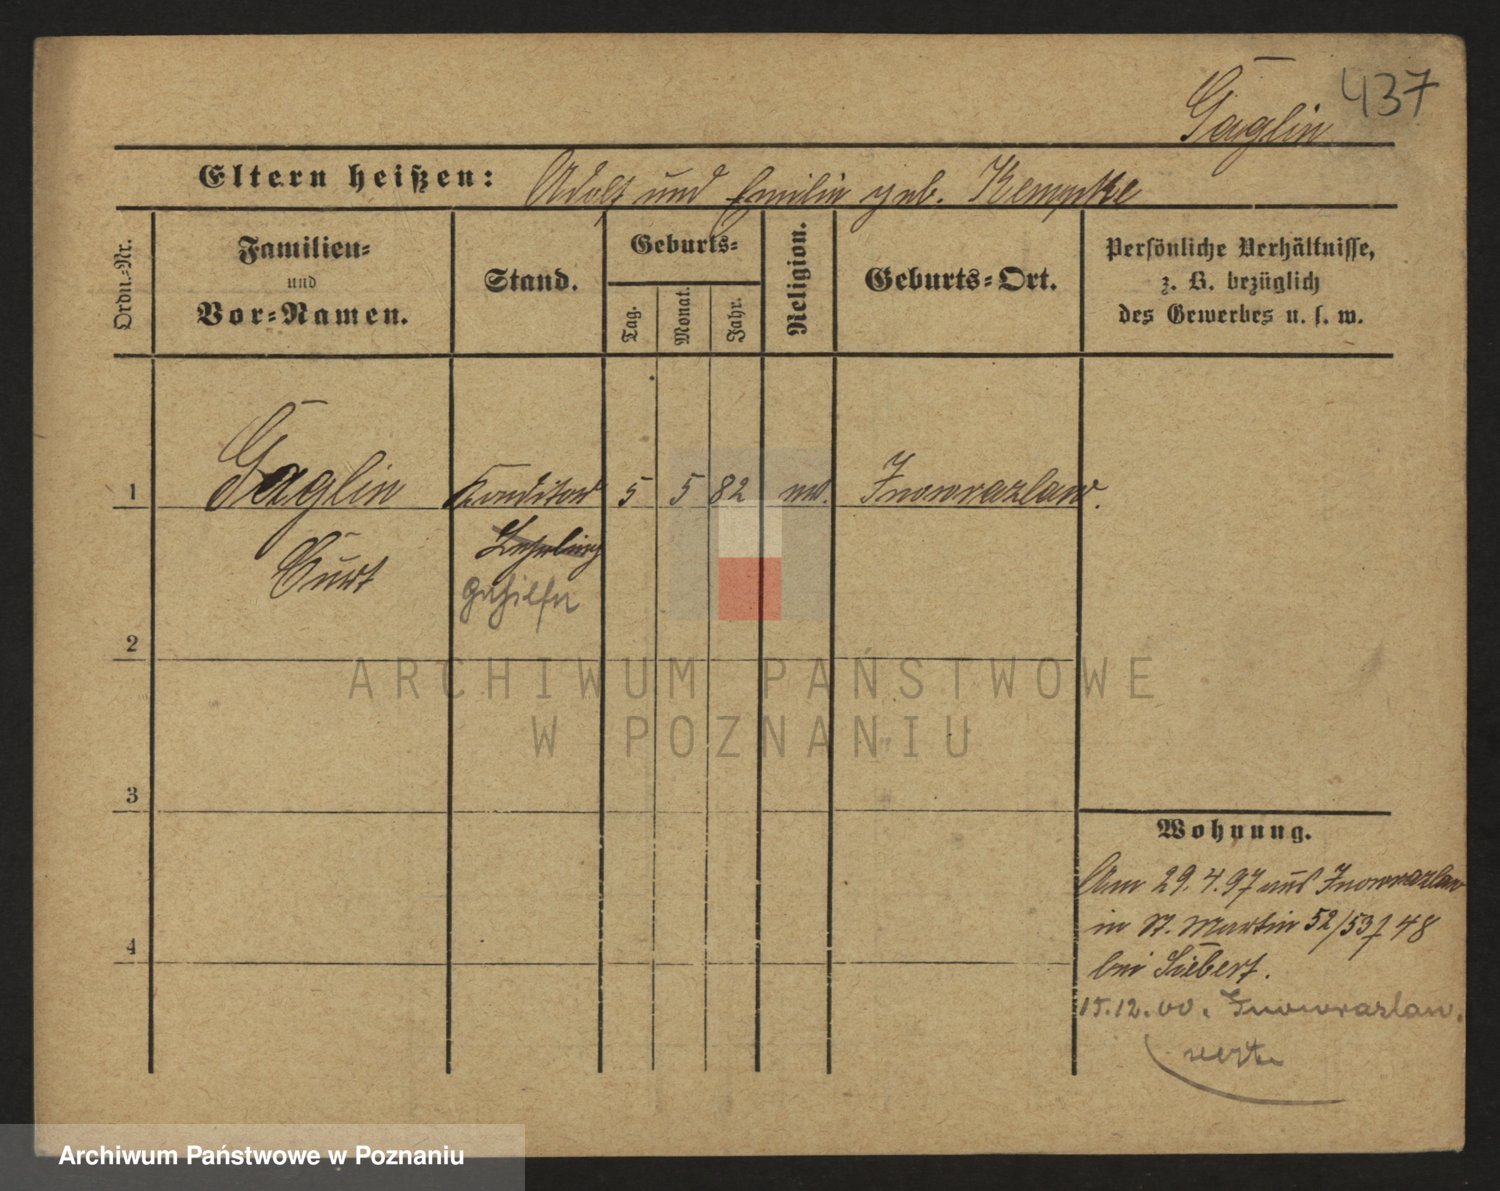 437
Gaglin
Eltern heißen: Adolf und Emilie geb. Kempke
Ordn.-Nr.
Familien-
und
Vor-Namen.
Stand.
Geburts-
Tag.
Monat.
Jahr.
Religion.
Geburts-Ort.
Persönliche Verhältnisse,
z. B. bezüglich
des Gewerbes u. s. w.
1 Gaglin Konditor 5 5 82 Inowrazlaw.
Lehrling
Curt
Gehilfe
2
ARCHIWUM PAŃSTWOWE
W POZNANIU
3
Wohnung.
Am 29.4.97 aus Inowrazlaw
in St. Martin 52/53 48
4
bei Siebert.
15.12.00. Inowrazlaw.
Archiwum Państwowe w Poznaniu